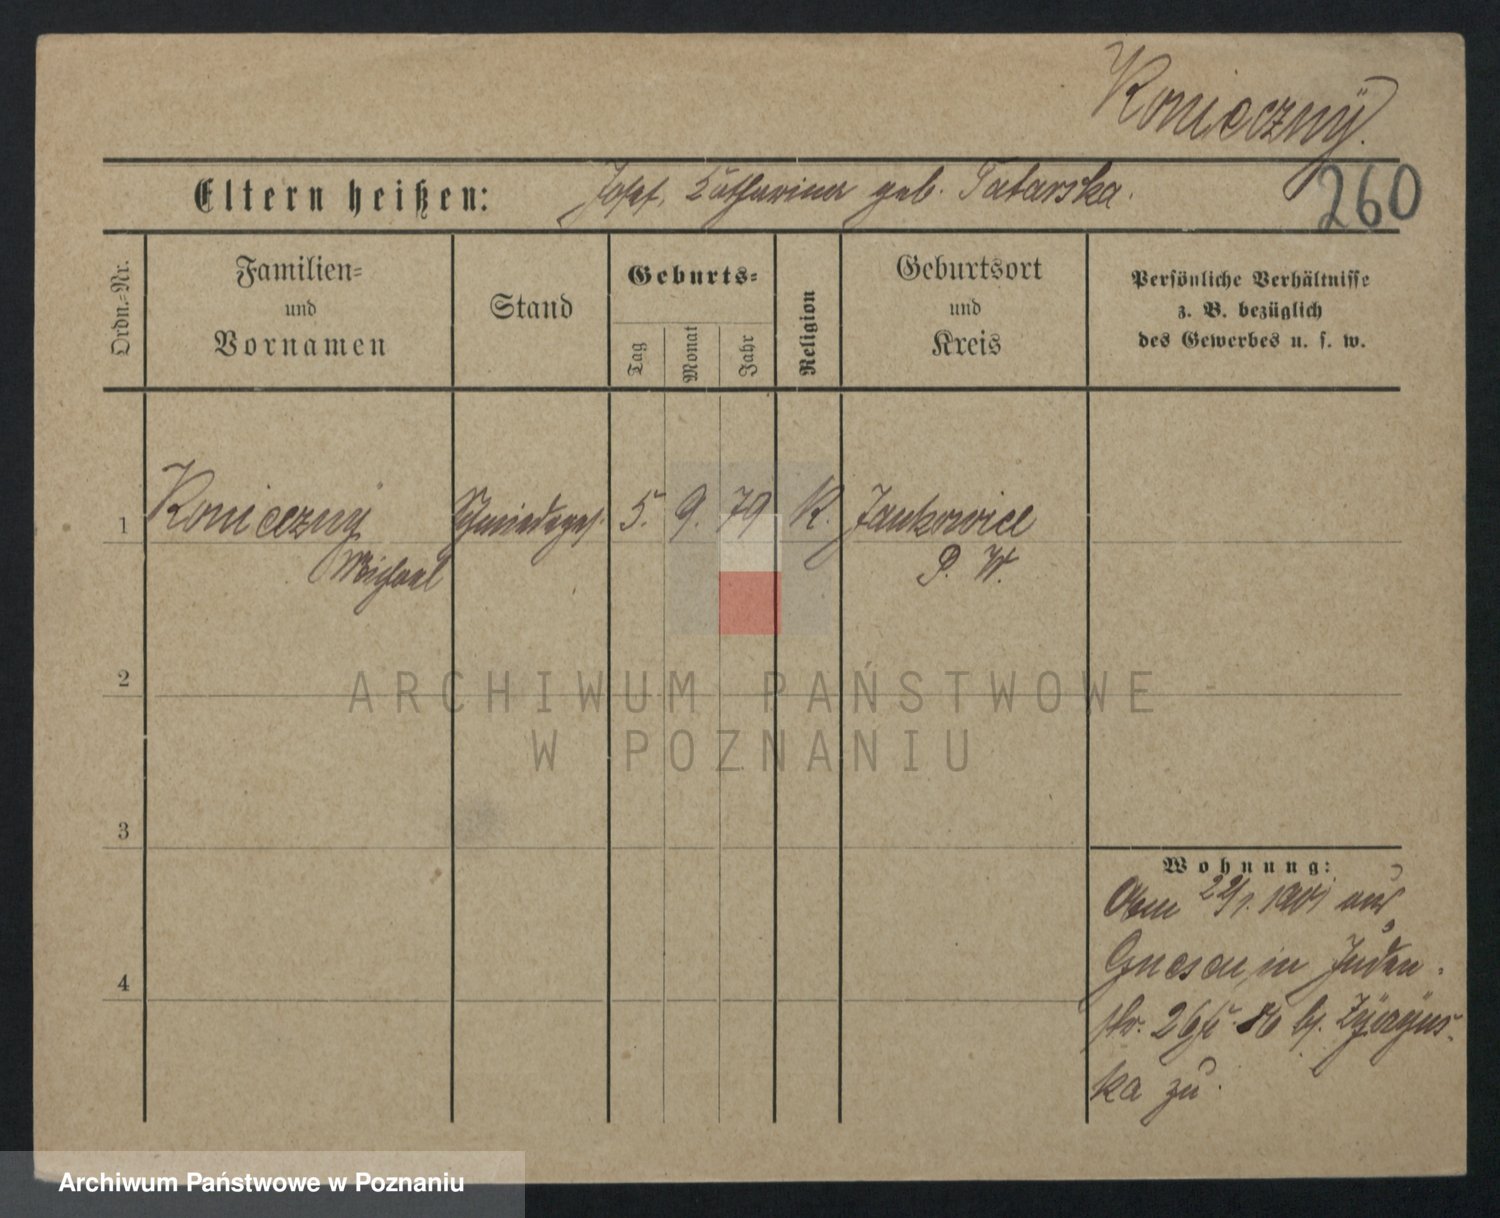 Konieczny.
Eltern heißen: Josef, Katharina geb. Tatarska.
260
Ordn.-Nr.
Familien-
und
Vornamen
Stand
Geburts-
Tag
Monat
Jahr
Religion
Geburtsort
und
Kreis
Persönliche Verhältnisse
z. B. bezüglich
des Gewerbes u. s. w.
1 Konieczny Schmiedeges. 5. 9. 79 K. Jankowice
Michael P. W.
2
ARCHIWUM PAŃSTWOWE
W POZNANIU
3
Wohnung:
22/1. 1901 aus
Gnesen in Juden-
4
str. 26 b.
ka zu.
Archiwum Państwowe w Poznaniu